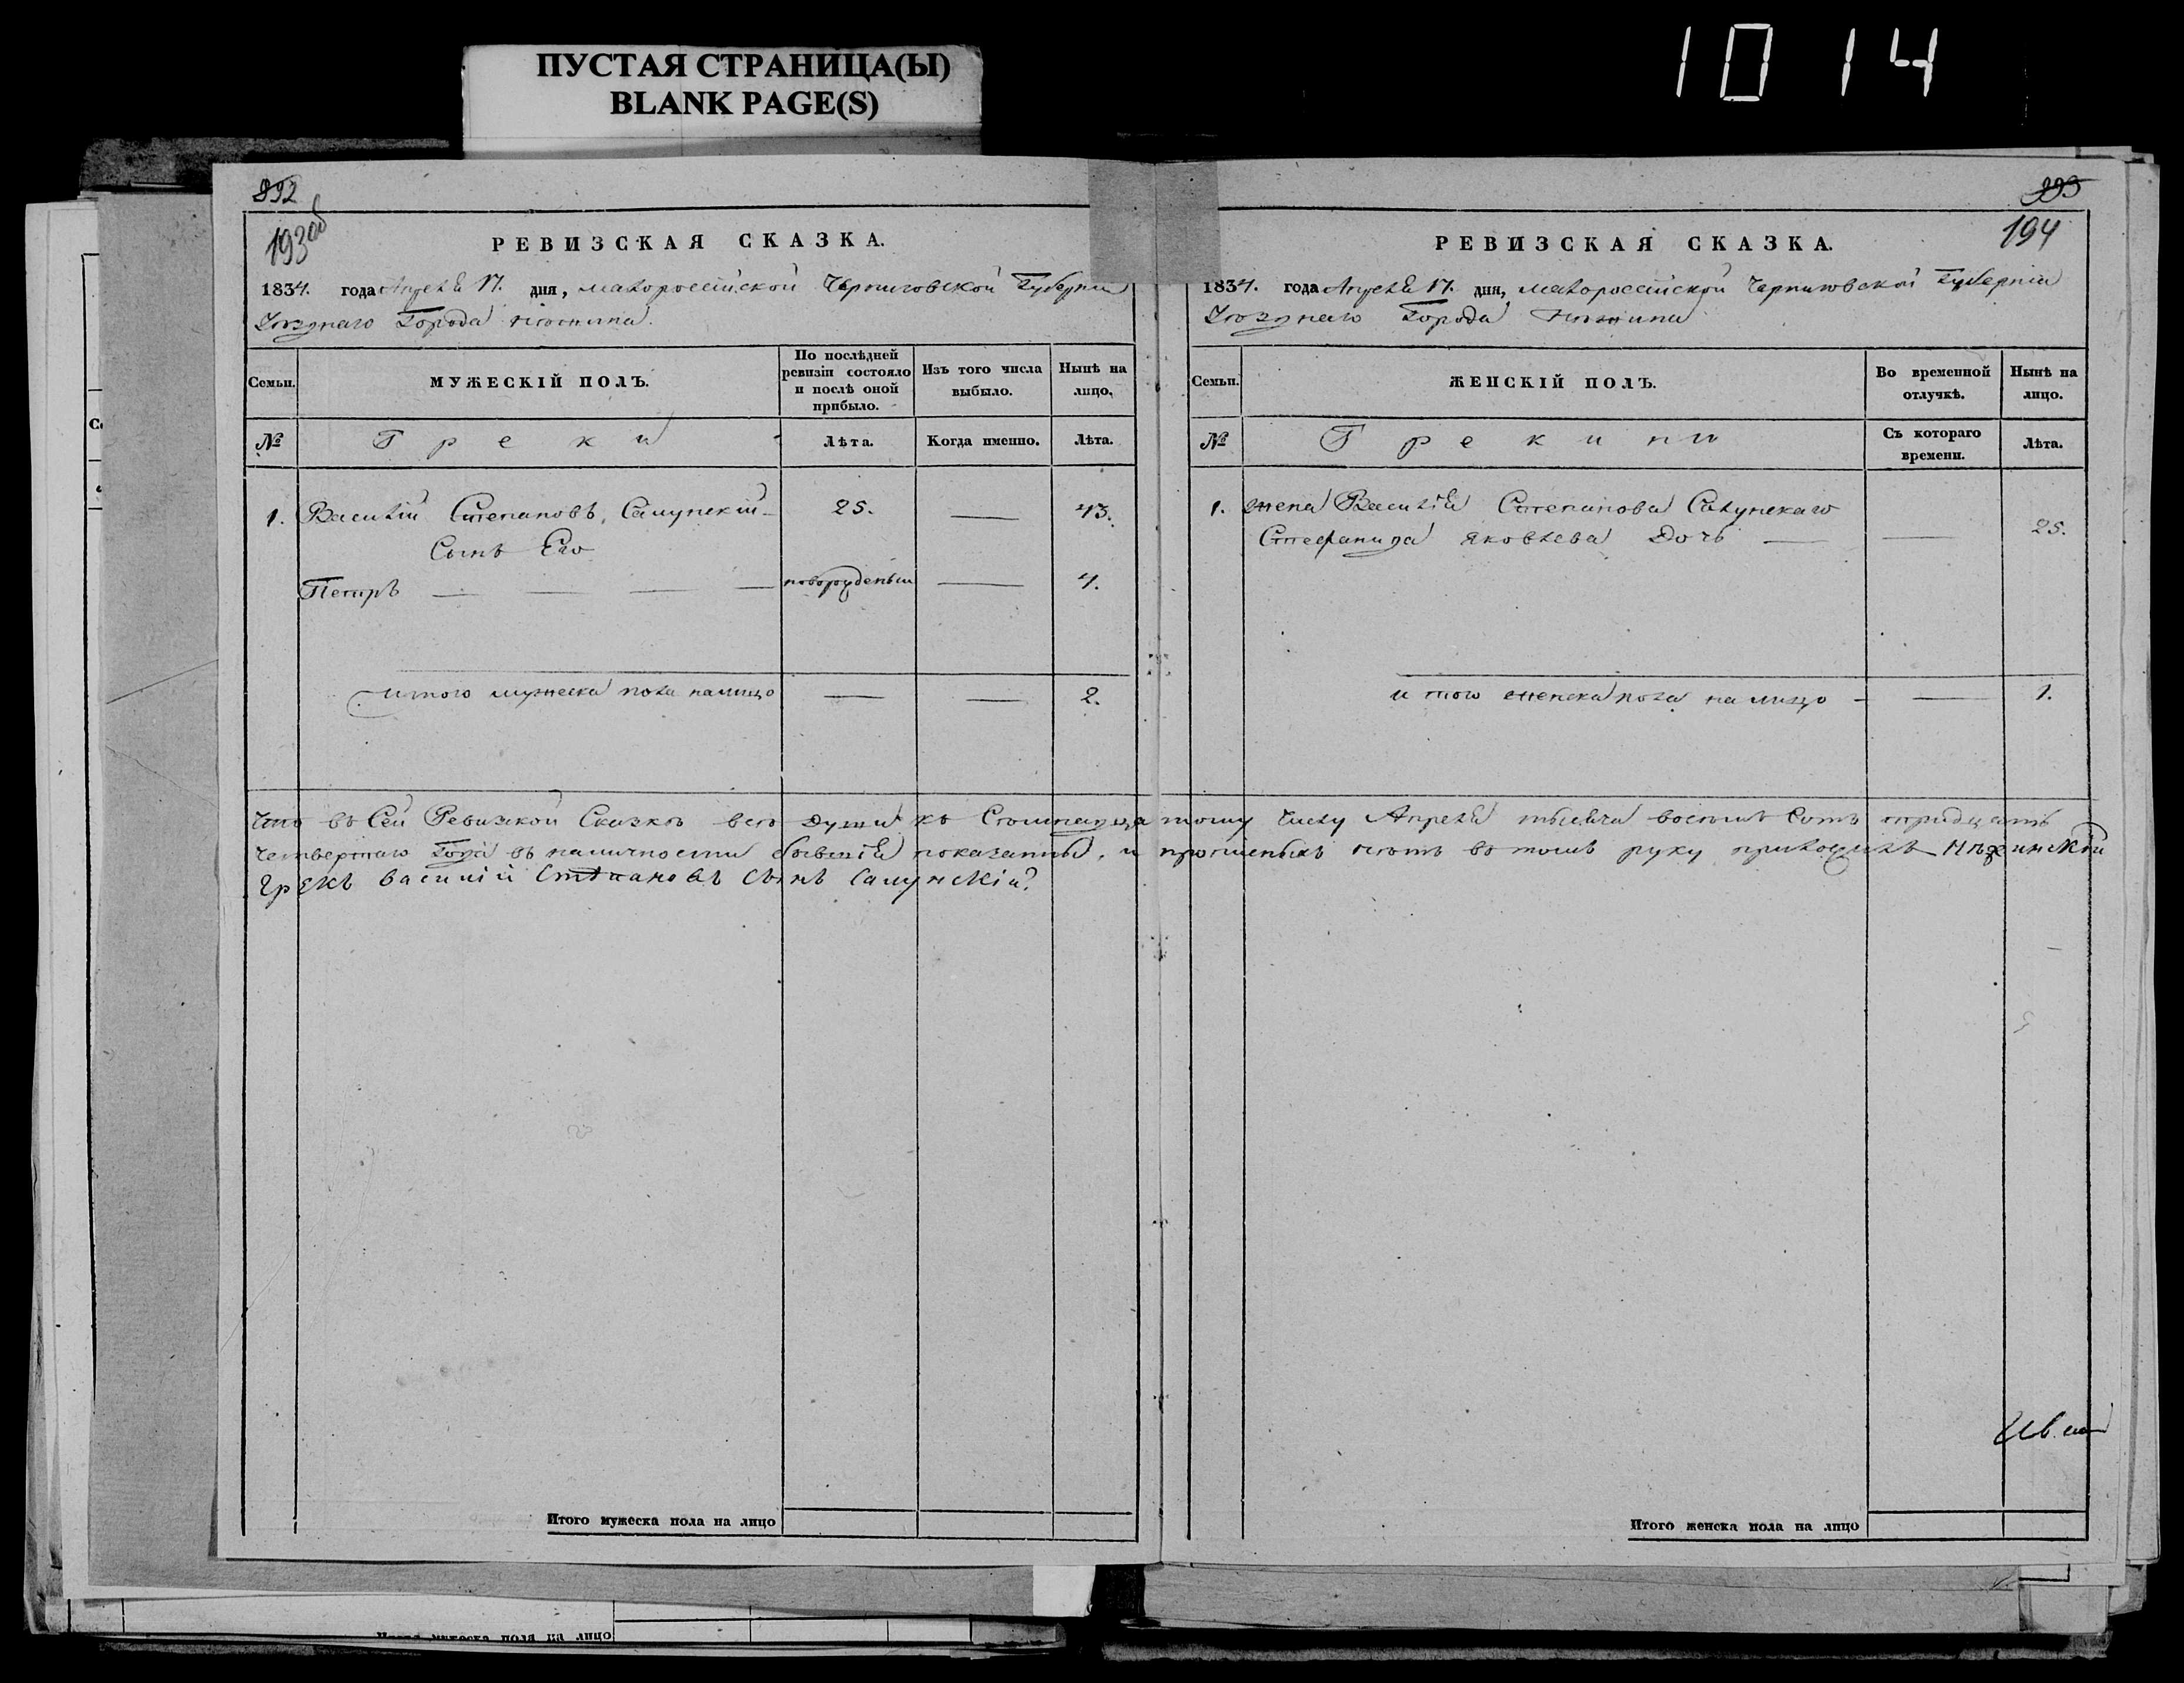 ПУСТАЯ СТРАНИЦА(Ы)
BLANK PAGE(S)
1014
892
193 об
РЕВИЗСКАЯ СКАЗКА.
1834. года Апреля 17. дня, малороссійской Черниговской Губерніи
Уезднаго Города Нежина.
Семьи.
МУЖЕСКІЙ ПОЛЪ.
По послѣдней ревизіи состояло и послѣ оной прибыло.
Изъ того числа выбыло.
Нынѣ на лицо.
№
Греки
Лѣта.
Когда именно.
Лѣта.
1. Василій Степановъ, Салунскій 25. — 43.
Сынъ Его
Петръ — — — — новорожденъ — 4.
итого мужеска пола налицо — — 2.
893
194
РЕВИЗСКАЯ СКАЗКА.
1834. года Апреля 17. дня, малороссійской Черниговской Губерніи
Уезднаго Города Нежина
Семьи.
ЖЕНСКІЙ ПОЛЪ.
Во временной отлучкѣ.
Нынѣ на лицо.
№
Грекини
Съ котораго времени.
Лѣта.
1. жена Василія Степанова Салунскаго
Стефанида Яковлева Дочь — — 25.
и того женска пола на лицо — — 1.
Что въ Сей Ревизской Сказке все души къ тому числу Апреля тысяча восемъ Сотъ тридцать
четвертаго Года въ наличности бывшія показаны, и нетъ въ томъ руку приложилъ Нѣжинскій
Грекъ Василий Степановъ Сынъ Салунскій
Итого мужеска пола на лицо
Итого женска пола на лицо